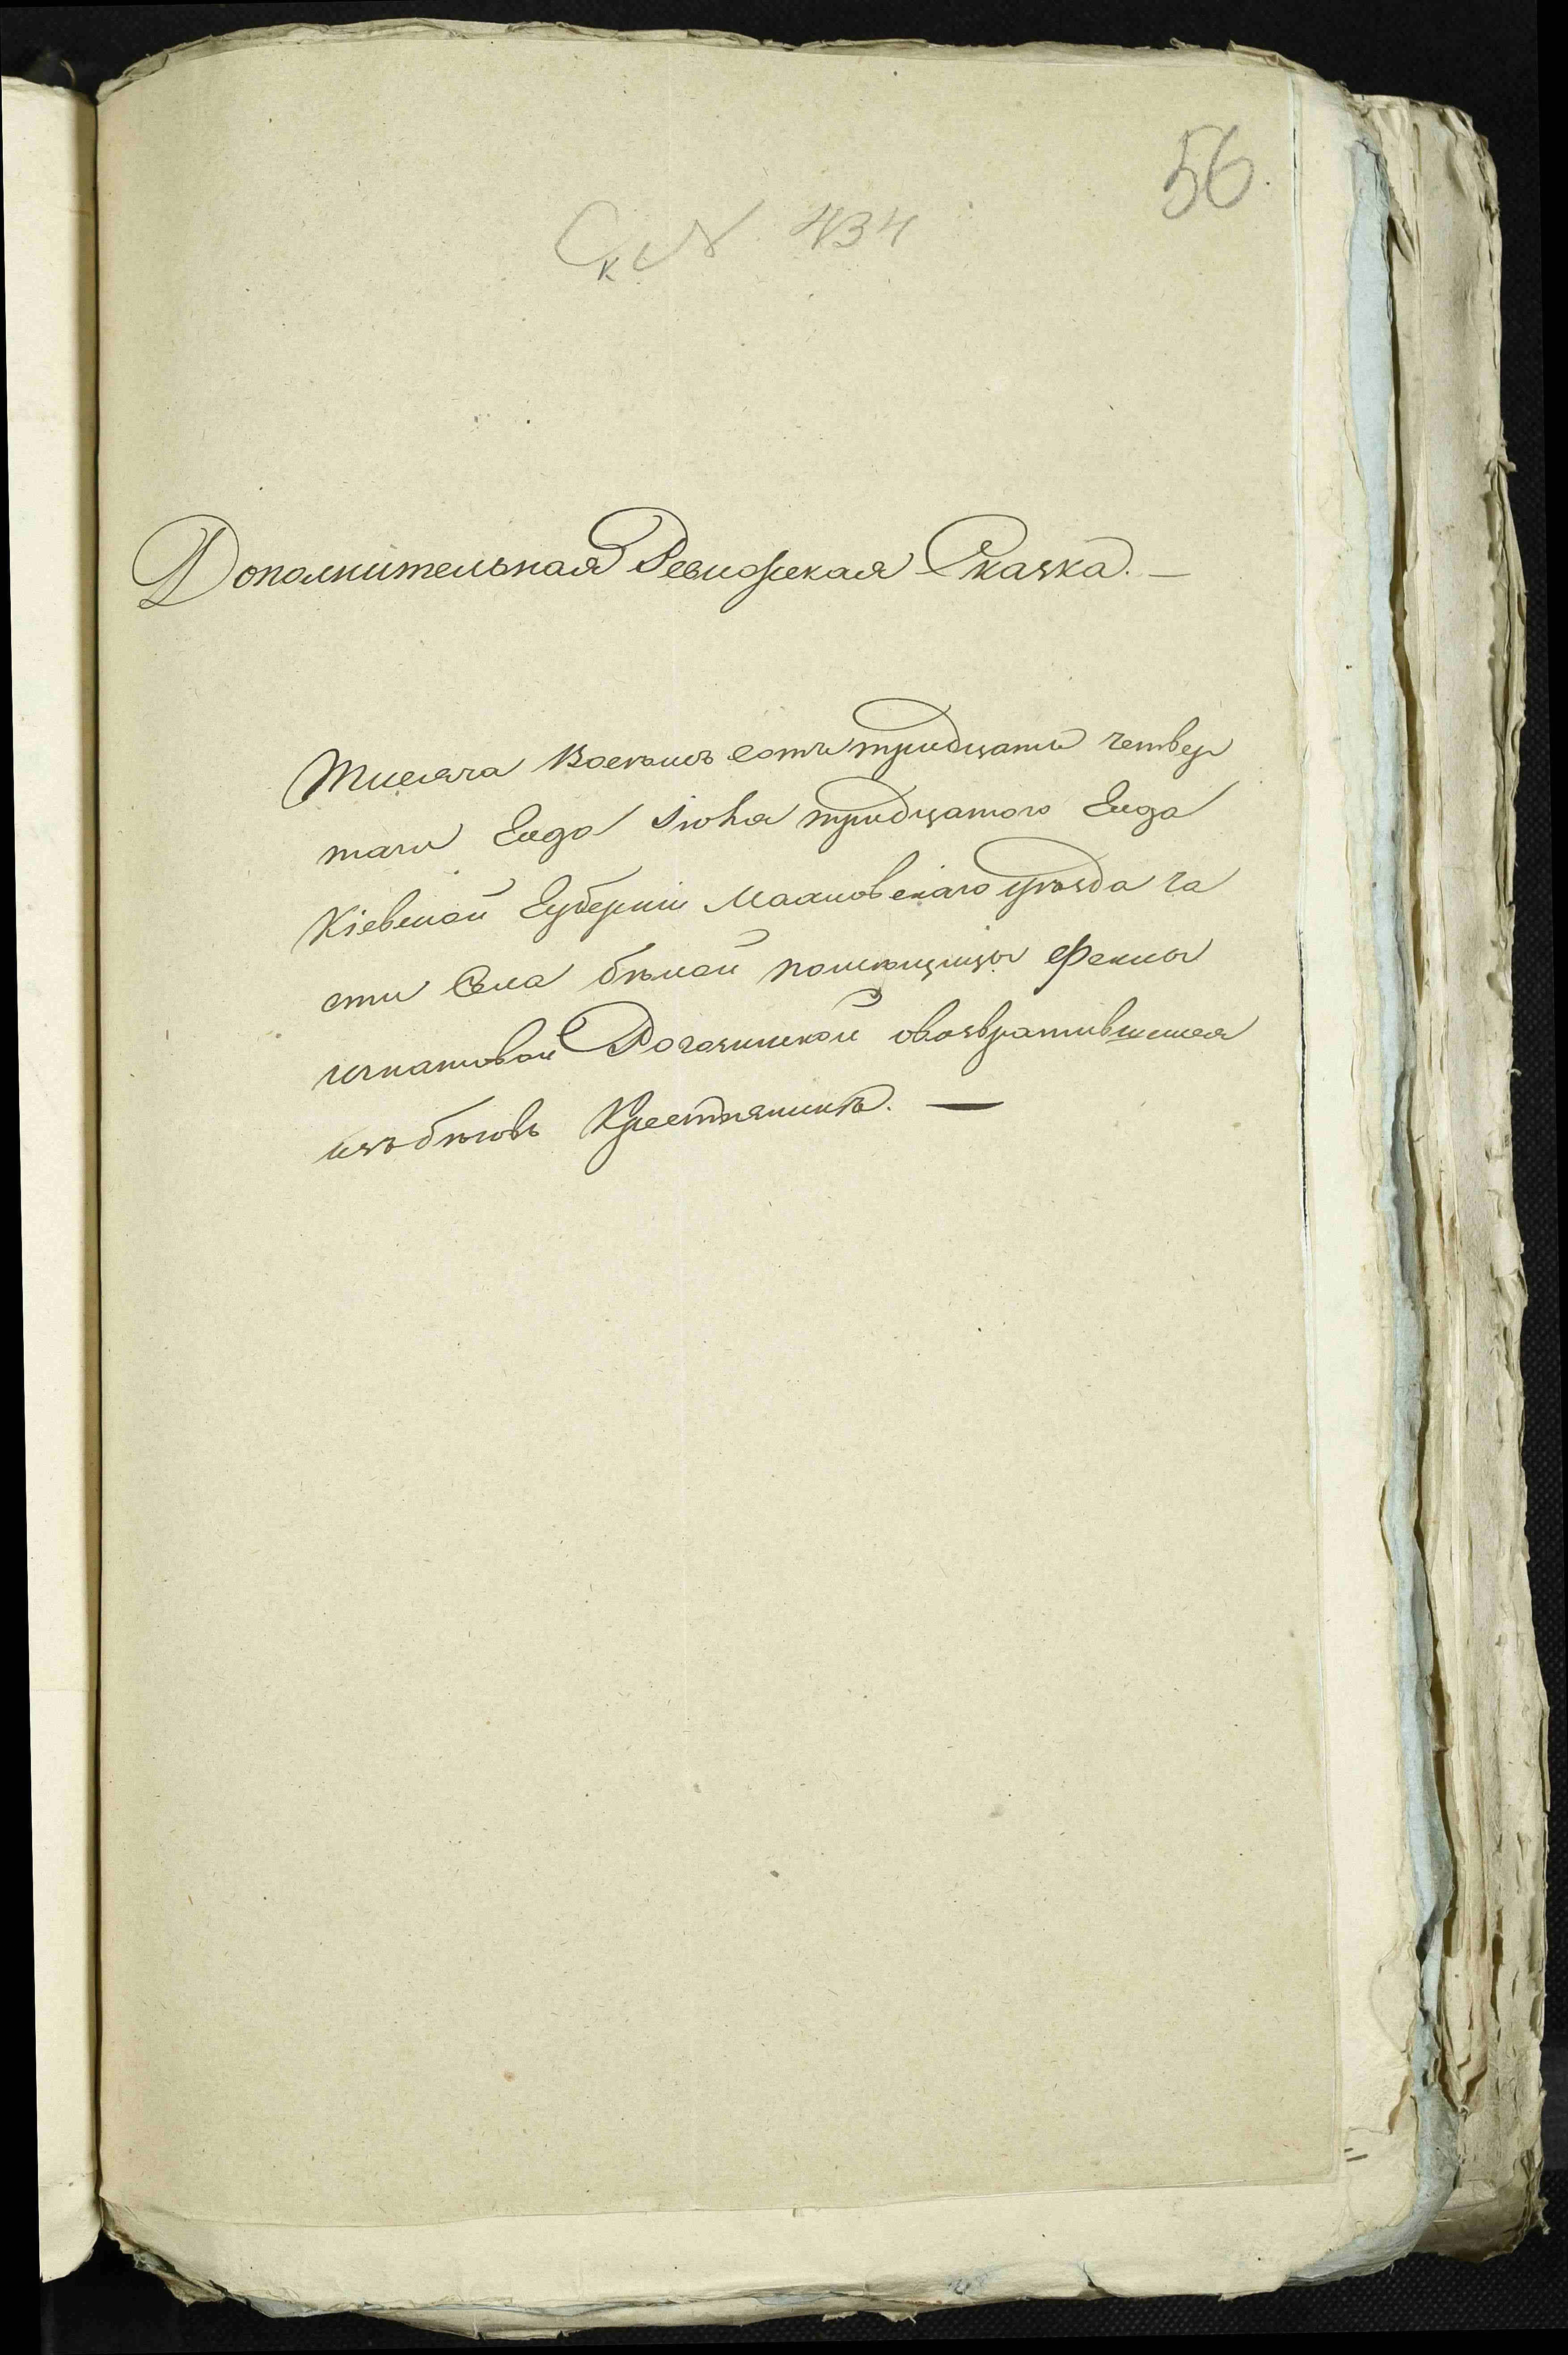 56.
Ск № 434
Дополнительная Ревизская Сказка. —
Тисяча Восемъ сотъ тридцати четвер
таго Года Июня тридцатого Года
Кіевской Губерніи Махновскаго уѣзда ча
сти Села бѣлой помещицы Феклы
игнатовой Рогозинской овозвратившися
изъ бѣговъ Крестянинѣ. —